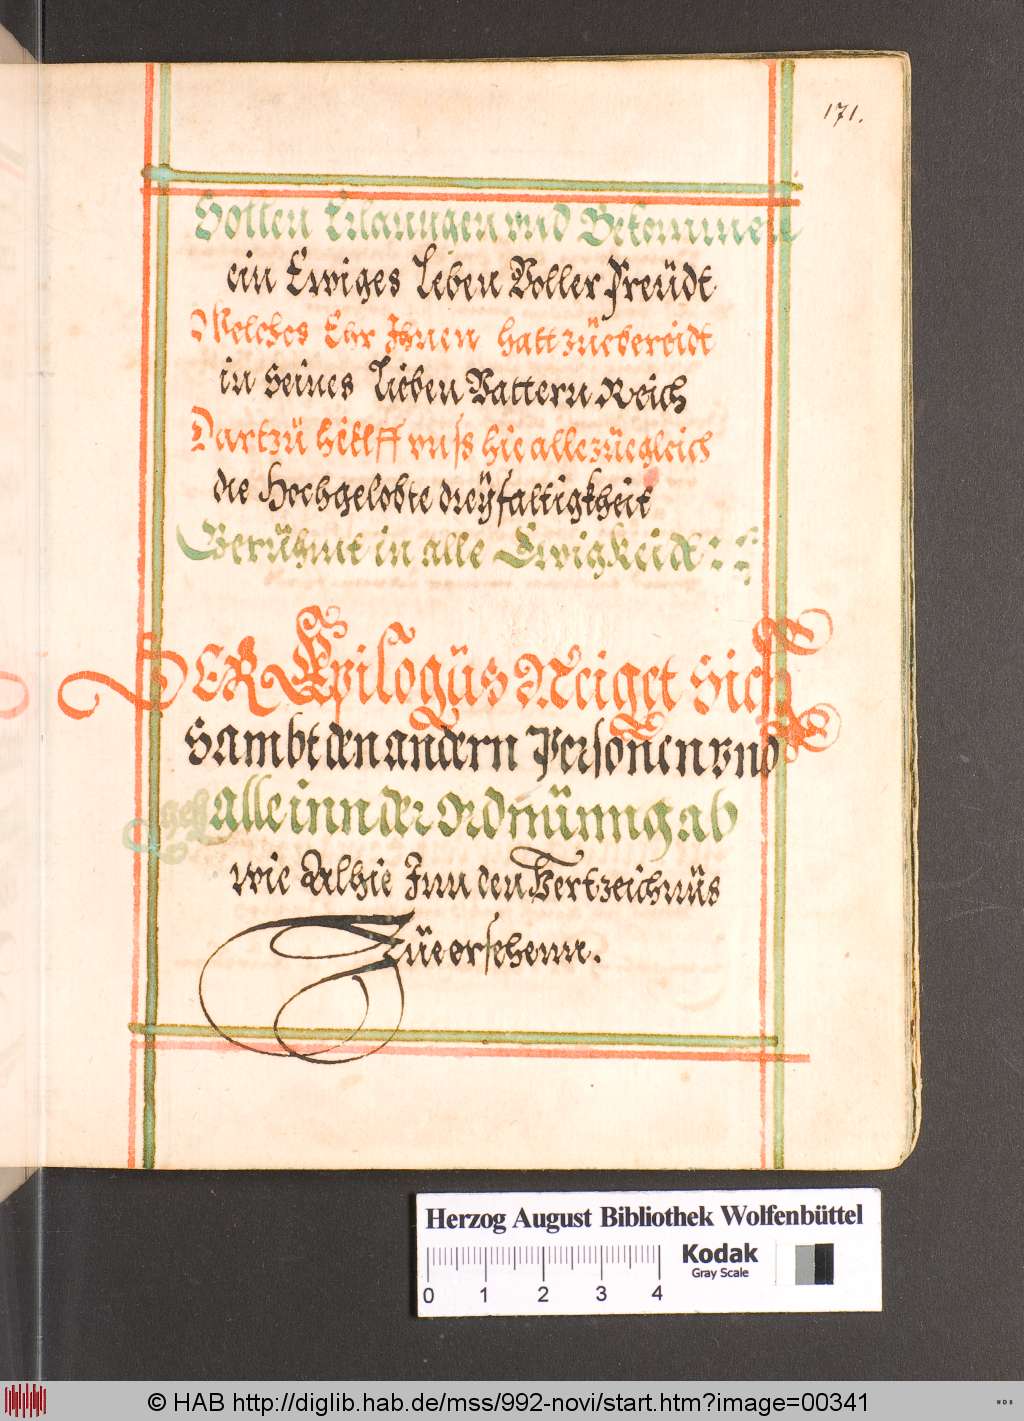 171.
Sollen Erlanngen vnd Bekommen
ein Ewiges Leben Voller Freüdt
Welches Ehr Ihnen hatt zúebereidt
in Seines Lieben Vattern Reich
Dartzú hëlff vnß hie alle zúegleich
die Hochgelobte dreÿfaltigkheit
Gerühmt in alle Ewigkeidt
DER Epilogús Neiget Sich
Sambt den andern Personen vnd
gehn alle inn der Ordnünng ab
wie Alhie Inn den Vertzeichnús
Zúe ersehenn.
Herzog August Bibliothek Wolfenbüttel
Kodak
Gray Scale
0 1 2 3 4
© HAB http://diglib.hab.de/mss/992-novi/start.htm?image=00341